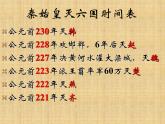 秦始皇灭六国时间表
公元前230年灭韩
公元前228年攻邯郸，8年后灭赵
公元前225年决黄河水灌大梁城，灭魏
公元前223年派老将王翦率60万灭楚
公元前222年灭燕
公元前221年灭齐